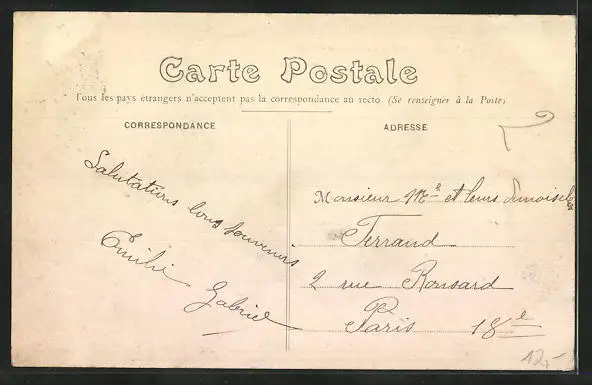 Carte Postale
Tous les pays étrangers n'acceptent pas la correspondance au recto (Se renseigner à la Poste)
CORRESPONDANCE
ADRESSE
Salutations bons souvenirs
Emilie
Gabriel
Monsieur Me et leurs demoiselles
Ferrand
2 rue Ronsard
Paris 18e
12,-